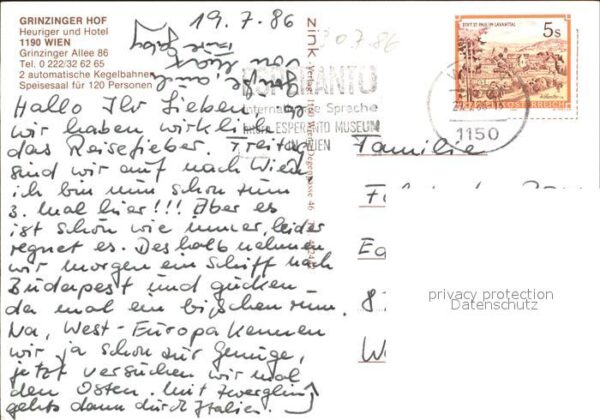 GRINZINGER HOF
Heuriger und Hotel
1190 WIEN
Grinzinger Allee 86
Tel. 0 222/32 62 65
2 automatische Kegelbahnen
Speisesaal für 120 Personen
19.7.86
Hallo Ihr Lieben
wir haben wirklich
das Reisefieber. Freitag
sind wir auf nach Wien,
ich bin nun schon zum
3. mal hier!!! Aber es
ist schön wie immer, leider
regnet es. Deshalb nehmen
wir morgen ein Schiff nach
Budapest und gucken
da mal ein bißchen rum.
Na, West-Europa kennen
wir ja schon zur Genüge,
jetzt versuchen wir mal
den Osten. Mit Zwerglin
gehts dann durch Italien.
Grüße auch
von Kurt
Eure Gaby
zink - Verlag, 1160 Wien
ESPERANTO
Internationale Sprache
ESPERANTO MUSEUM
IN WIEN
STIFT ST. PAUL IM LAVANTTAL
5s
REPUBLIK ÖSTERREICH
1150
Familie
privacy protection
Datenschutz